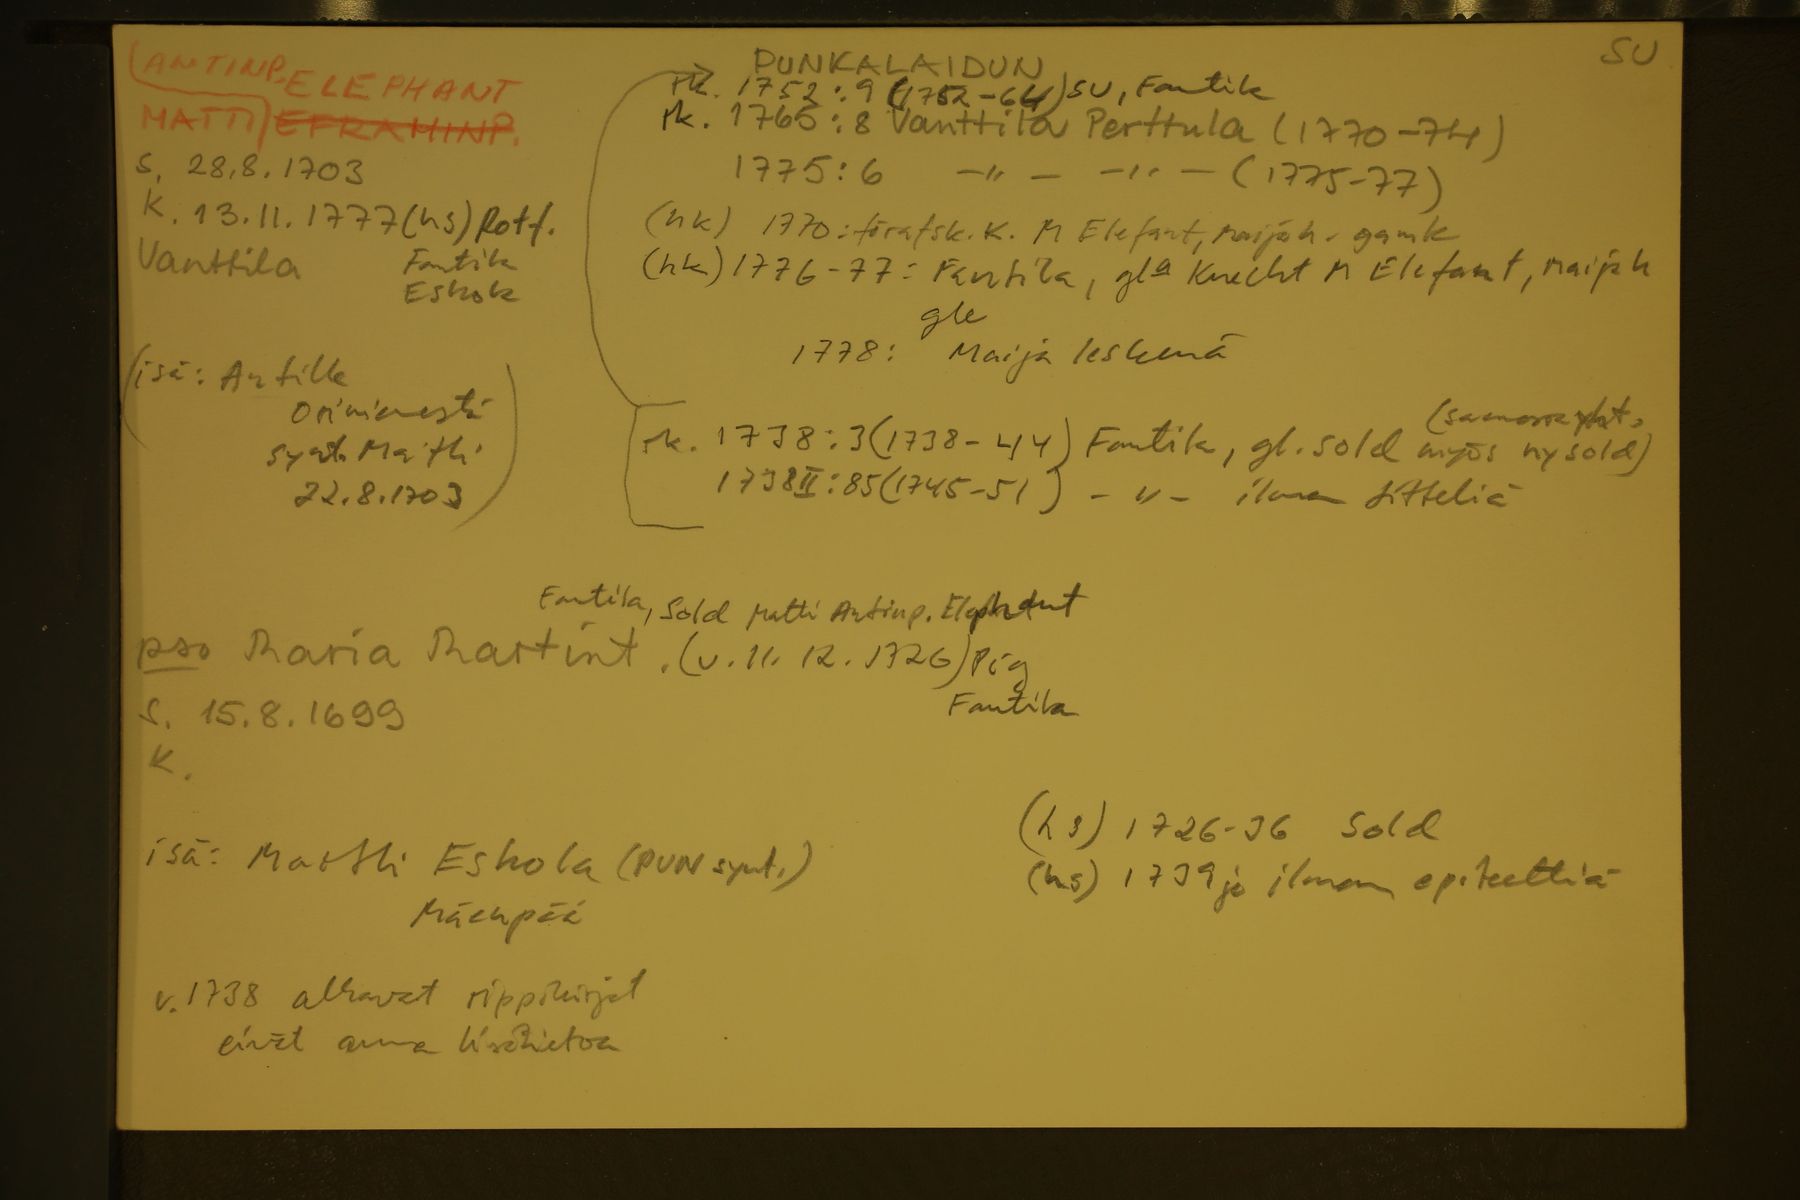 ANTINP. ELEPHANT
MATTI EFRAIMINP.
s. 28.8.1703
k. 13.11.1777 (hs) Rotf.
Vanttila Fantik
Eskok
(isä: Antille
Oriniemestä
synt. Matti
22.8.1703)
PUNKALAIDUN
SU
rk. 1752:9 (1752-64) SU, Fantik
rk. 1765:8 Vanttila Perttula (1770-74)
1775:6 -"- -"- (1775-77)
(hk) 1770: K. M Elefant, Maija h.
(hk) 1776-77: Fantila, gla Knecht M Elefant, Maija h
gle
1778: Maija leskenä
(samassa
rk. 1738:3 (1738-44) Fantik, gl. sold myös ny sold)
1738 II:85 (1745-51) -"- ilman titteliä
Fantila, Sold Matti Antinp. Elephant
pso Maria Martint. (v. 11.12.1726) Pig
Fantila
s. 15.8.1699
k.
(hs) 1726-36 Sold
isä: Martti Eskola (PUN synt.)
(hs) 1739 jo ilman epiteettiä
Mäenpää
v. 1738 alkavat rippikirjat
eivät anna lisätietoa